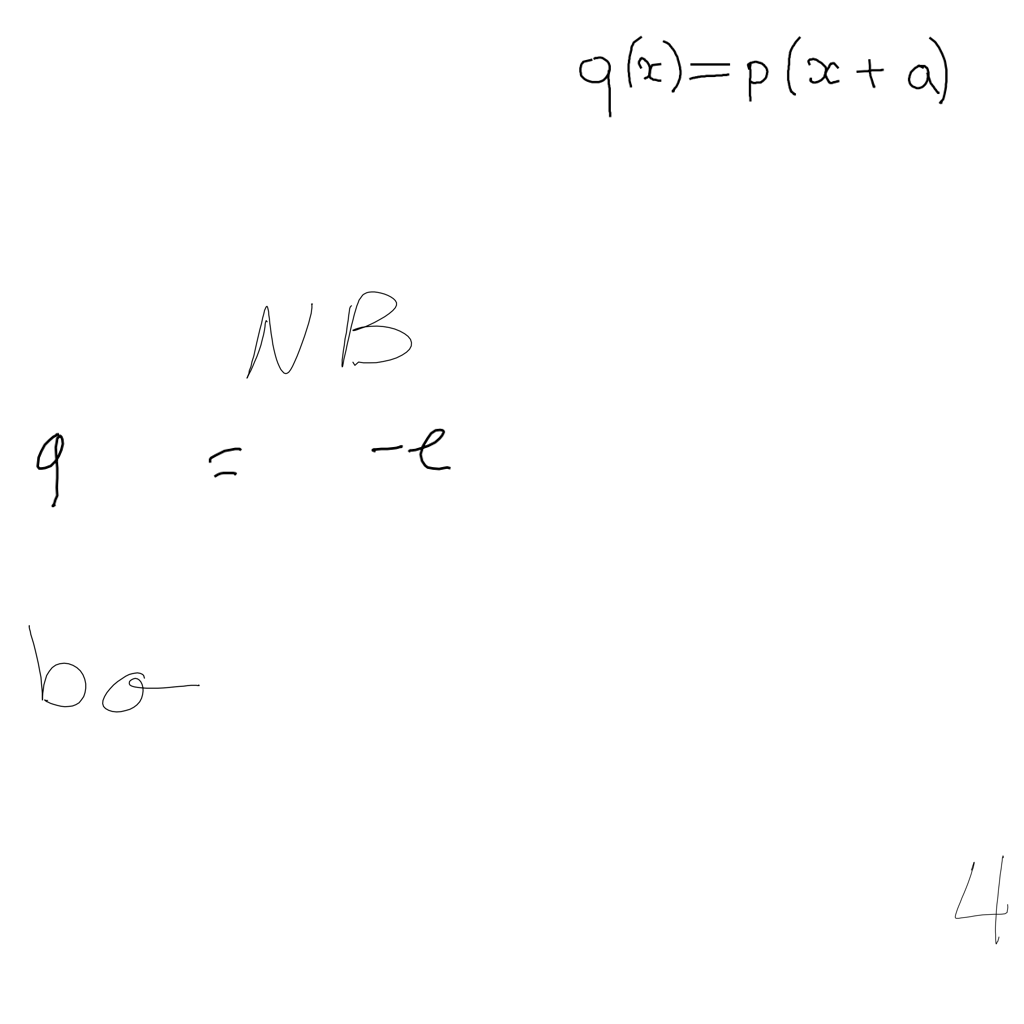 q(x)=p(x+a)
NB
q = -e
bo
4